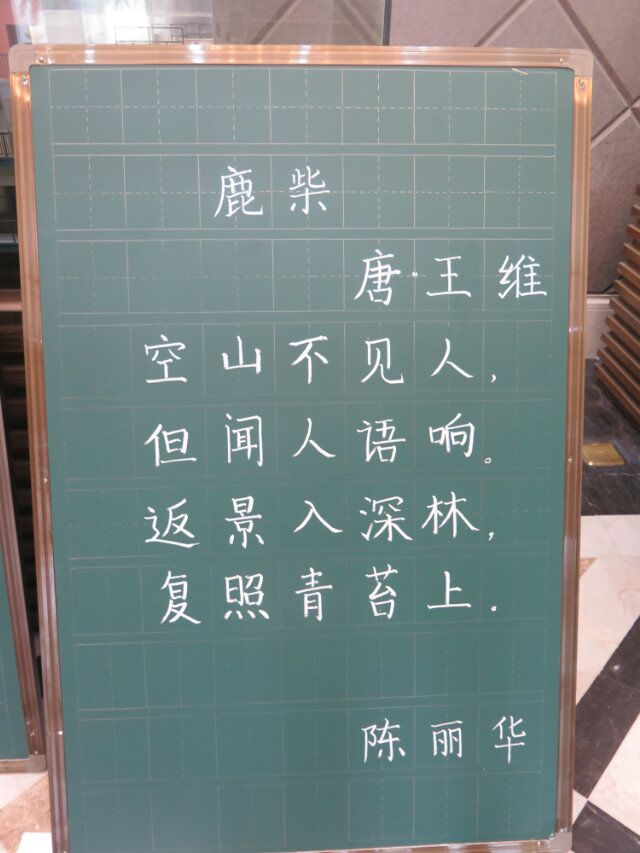 鹿柴
唐·王维
空山不见人，
但闻人语响。
返景入深林，
复照青苔上.
陈丽华